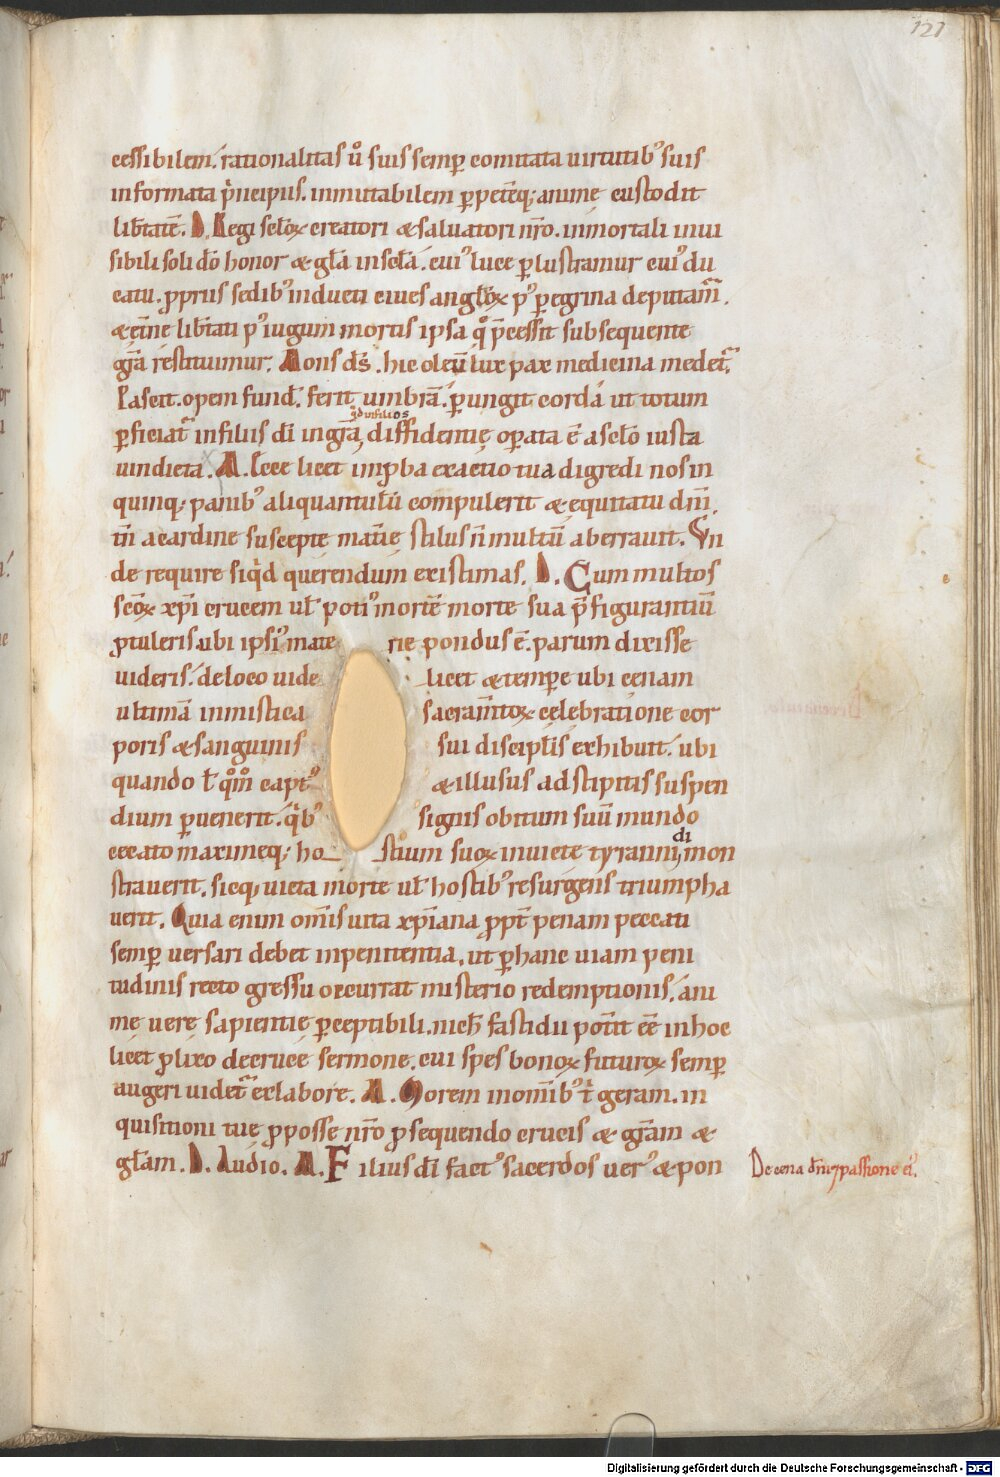 121
cessibilem. rationalitas ů suis semꝑ comitata uirtutib᾽ suis
informata p̊ncipiis. inmutabilem ꝑpetēq; animę custodit
lib̄tatē. D. Regi sclō℞ creatori & saluatori nr̄o. inmortali inui
sibili soli dō honor & gl̄a in sclā. cui᾽ luce ꝑlustramur cui᾽ du
catu. ꝓpriis sedib᾽ inducti ciues anglo℞ p᾽ peregrina deputam̄.
lib̄tati p᾽ iugum mortis ipsa subsequente
gr̄a restituimur. Mons dī. hic oleū lux pax medicina medet᷑.
Pascit. opem fund᷑. ferit umbrā. ꝑungit corda ut totum
ꝑficiat᷑ in filiis dī in gr̄a, diffidentię oꝑata ē a sclō iusta
uindicta. M. Ecce licet inp̱ba exactio tua digredi nos in
quinq; panib᾽ aliquantulū compulerit & equitatu dn̄i.
tn̄ a cardine susceptę mat̄ię stilus n̄ multū aberrauit. Vn
de require siq̇d querendum existimas. D. Cum multos
scō℞ xp̄i crucem ul᷑ poti᾽ mortē morte sua p̄figurantiū
ꝓtuleris ubi ipsi᾽ mate rię pondus ē. parum dixisse
uideris. de loco uide licet & tempere ubi cenam
ultimā in mistica sacram̄to℞ celebratione cor
poris & sanguinis sui discipl̄is exhibuit. ubi
quando t᷑ qm̊ capt᾽ & illusus ad stipitis suspen
dium ꝑuenerit. q̇b᾽ signis obitum suū mundo
cecato maximeq; ho stium suo℞ inuicte tyranni, di mon
strauerit. sicq; uicta morte ul᷑ hostib᾽ resurgens triumpha
uerit. Quia enim om̄is uita xp̄iana ꝓpt̄ penam peccati
semꝑ uersari debet in penitentia. ut ꝑ hanc uiam peni
tudinis recto gressu occurrat misterio redemptionis. ani
mę uere sapientię ꝑceptibili. nich̄ fastidii pot̄it eē in hoc
licet ꝓlixo de cruce sermone. cui spes bono℞ futuro℞ semꝑ
augeri uidet᷑ ex labore. M. Morem in om̄ib᾽ t̊ geram. in
quisitioni tue ꝓ posse nr̄o ꝓsequendo crucis & gr̄am &
gl̄am. D. Audio. M. Filius dī fact᾽ sacerdos uer᾽ & pon
De cena dn̄i ⁊ passione ei᾽.
Digitalisierung gefördert durch die Deutsche Forschungsgemeinschaft - DFG